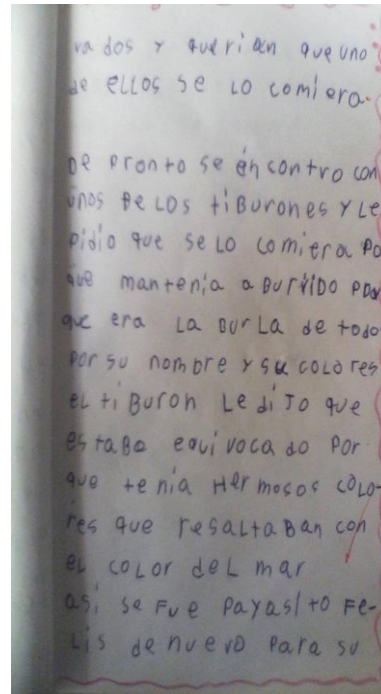 va dos y querian que uno
de ellos se lo comiera.
De pronto se éncontro con
unos de los tiburones y le
pidio que se lo comiera po
que mantenia aburrido por
que era la burla de todo
por su nombre y su colores
el tiburon le dijo que
estaba equivocado por
que tenia Hermosos colo-
res que resaltaban con
el color del mar
asi se fue payasito fe-
lis de nuevo para su